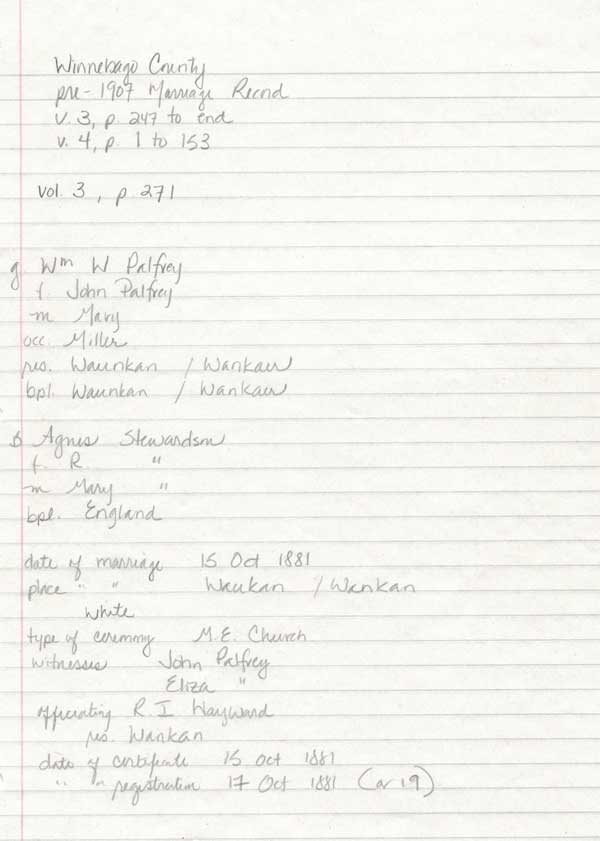 Winnebago County
pre-1907 Marriage Record
v. 3, p. 247 to end
v. 4, p. 1 to 153
vol. 3, p. 271
g. Wm W Palfrey
f. John Palfrey
m Mary
occ. Miller
res. Waunkan / Wankau
bpl. Waunkan / Wankau
b Agnes Stewardson
f. R. "
m Mary "
bpl. England
date of marriage 15 Oct 1881
place " " Waukan / Wankan
white
type of ceremony M.E. Church
witnesses John Palfrey
Eliza "
officiating R. I Hayward
res. Wankan
date of certificate 15 Oct 1881
" " registration 17 Oct 1881 (or 19)